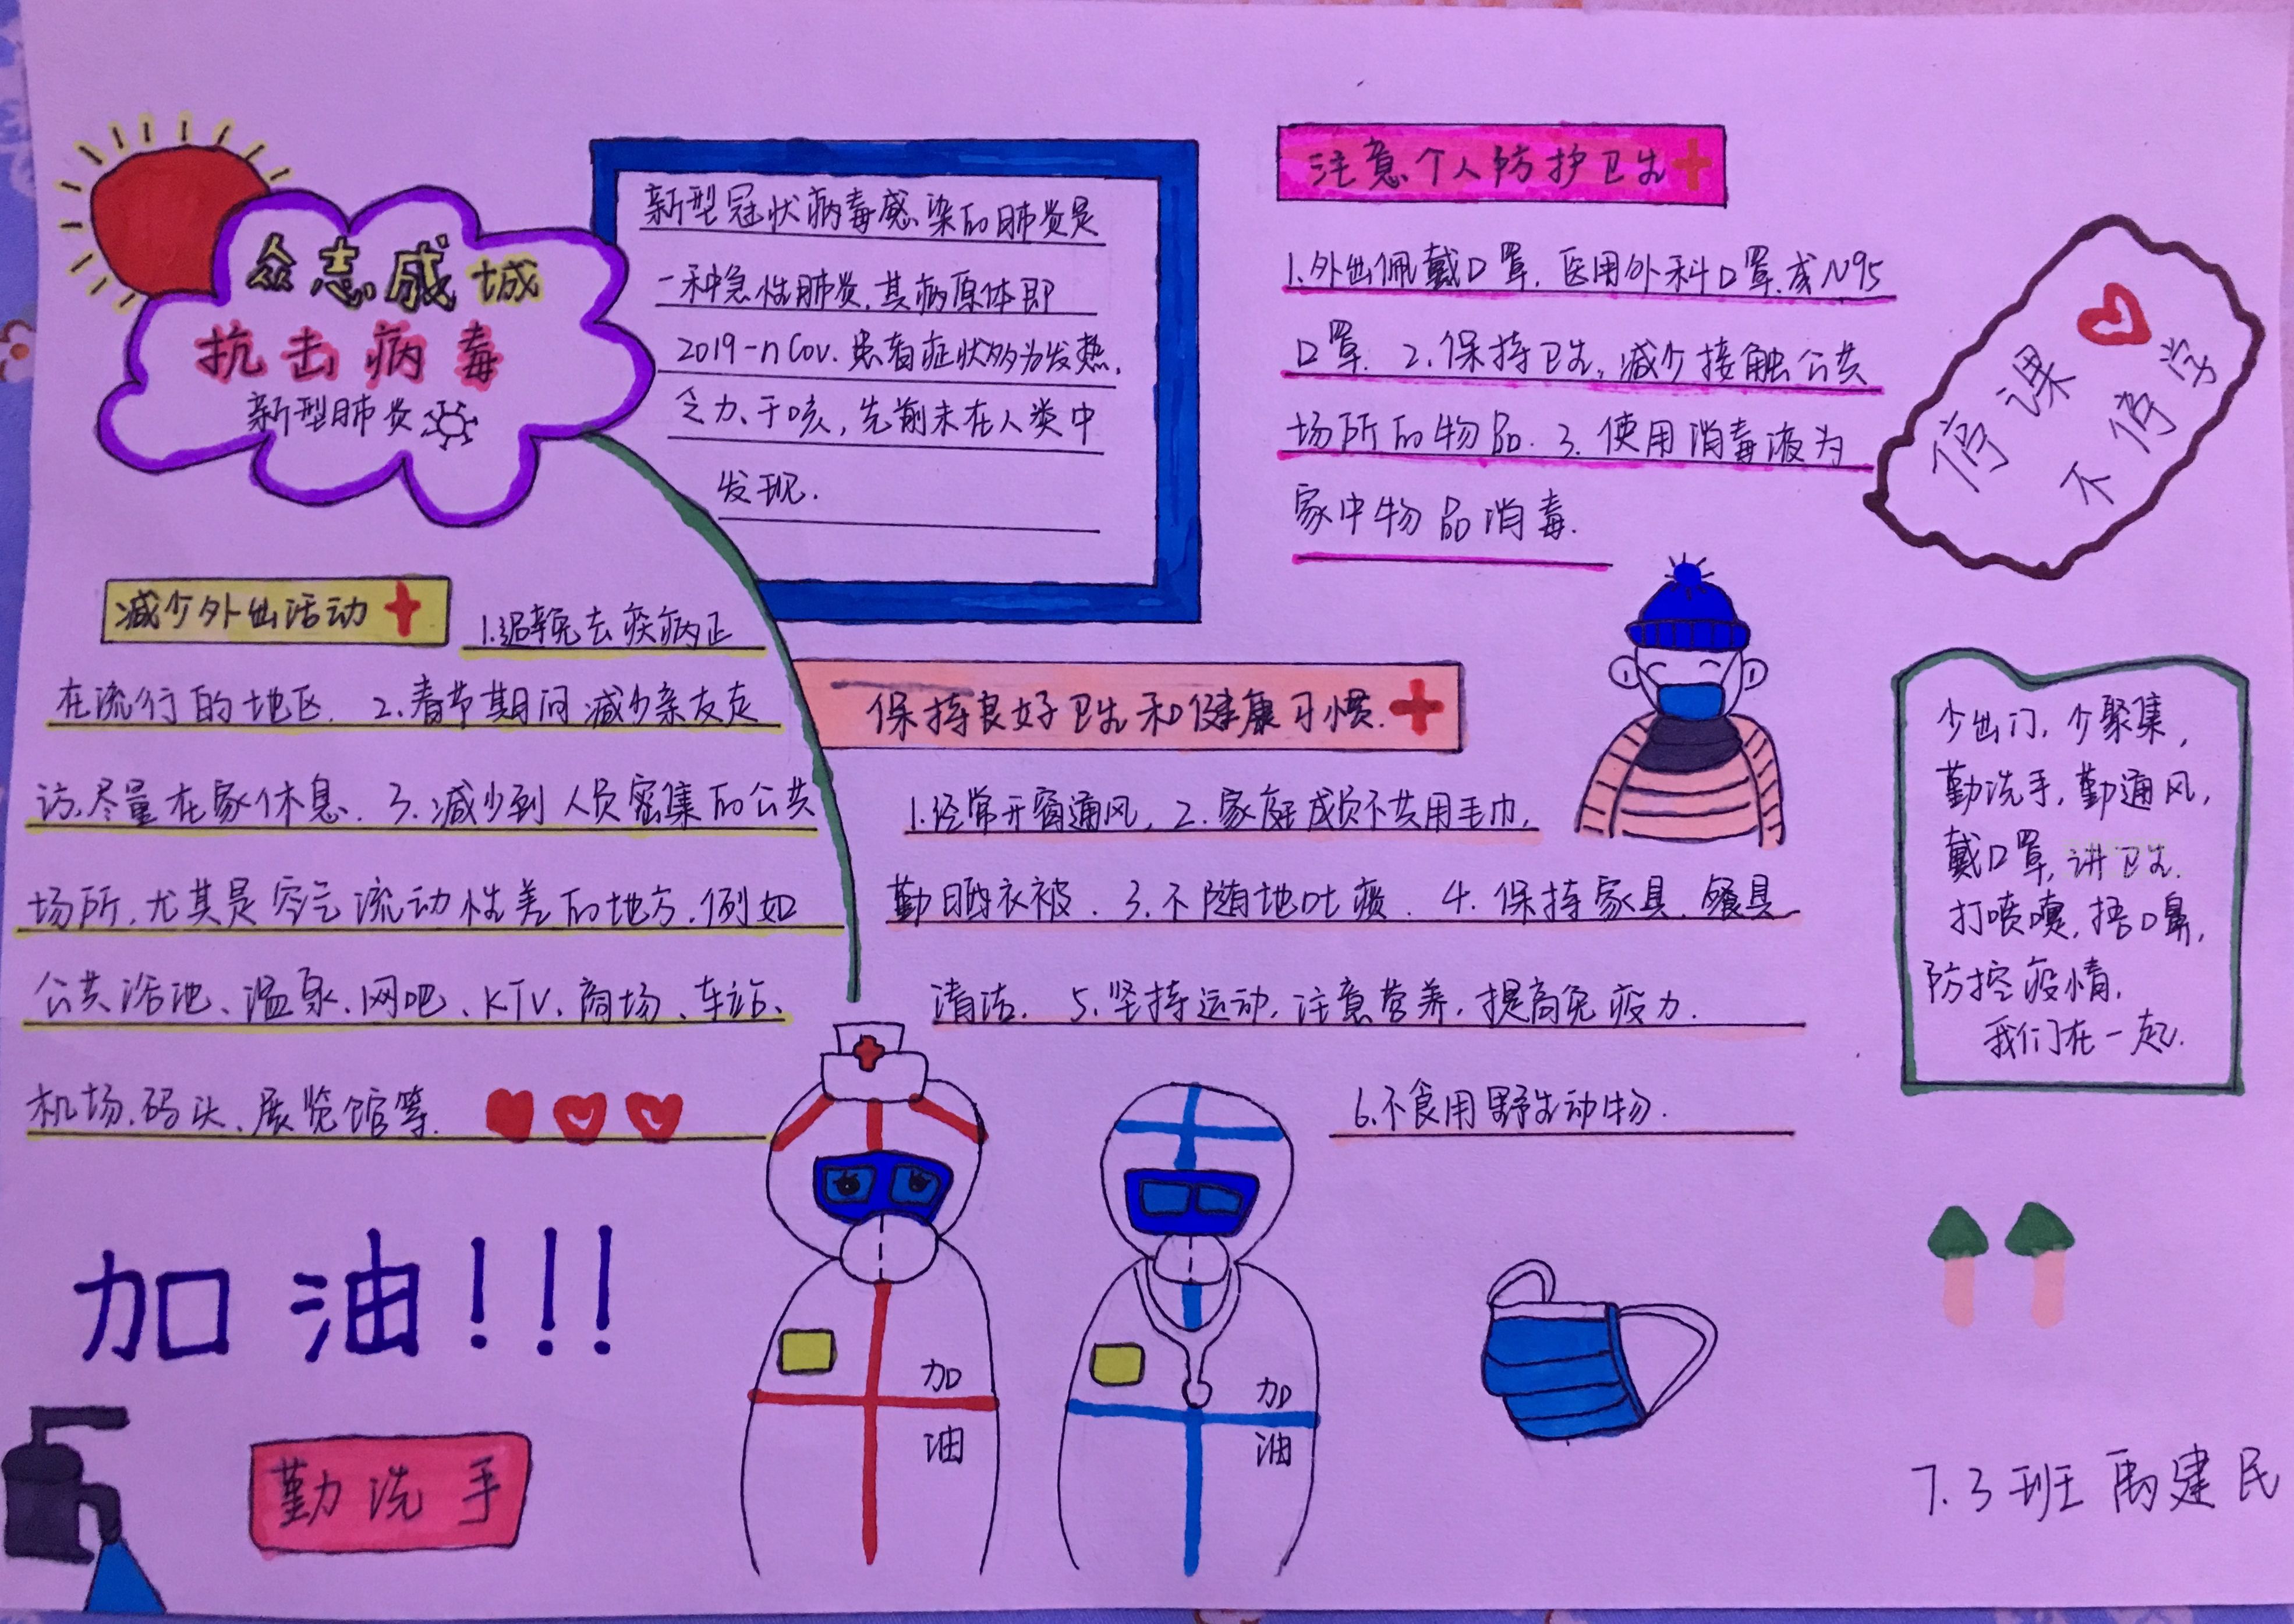 众志成城
抗击病毒
新型肺炎
新型冠状病毒感染的肺炎是
一种急性肺炎,其病原体即
2019-nCov.患者症状多为发热,
乏力、干咳,先前未在人类中
发现.
注意个人防护卫生
1.外出佩戴口罩,医用外科口罩或N95
口罩. 2.保持卫生,减少接触公共
场所的物品. 3.使用消毒液为
家中物品消毒.
停课
不停学
减少外出活动
1.避免去疾病正
在流行的地区. 2.春节期间减少亲友走
访,尽量在家休息. 3.减少到人员密集的公共
场所,尤其是空气流动性差的地方,例如
公共浴池、温泉、网吧、KTV、商场、车站、
机场、码头、展览馆等.
保持良好卫生和健康习惯.
1.经常开窗通风, 2.家庭成员不共用毛巾,
勤晒衣被. 3.不随地吐痰. 4.保持家具、餐具
清洁. 5.坚持运动,注意营养,提高免疫力.
6.不食用野生动物.
少出门,少聚集,
勤洗手,勤通风,
戴口罩,讲卫生.
打喷嚏,捂口鼻,
防控疫情,
我们在一起.
加油!!!
勤洗手
加
油
加
油
7.3班 禹建民